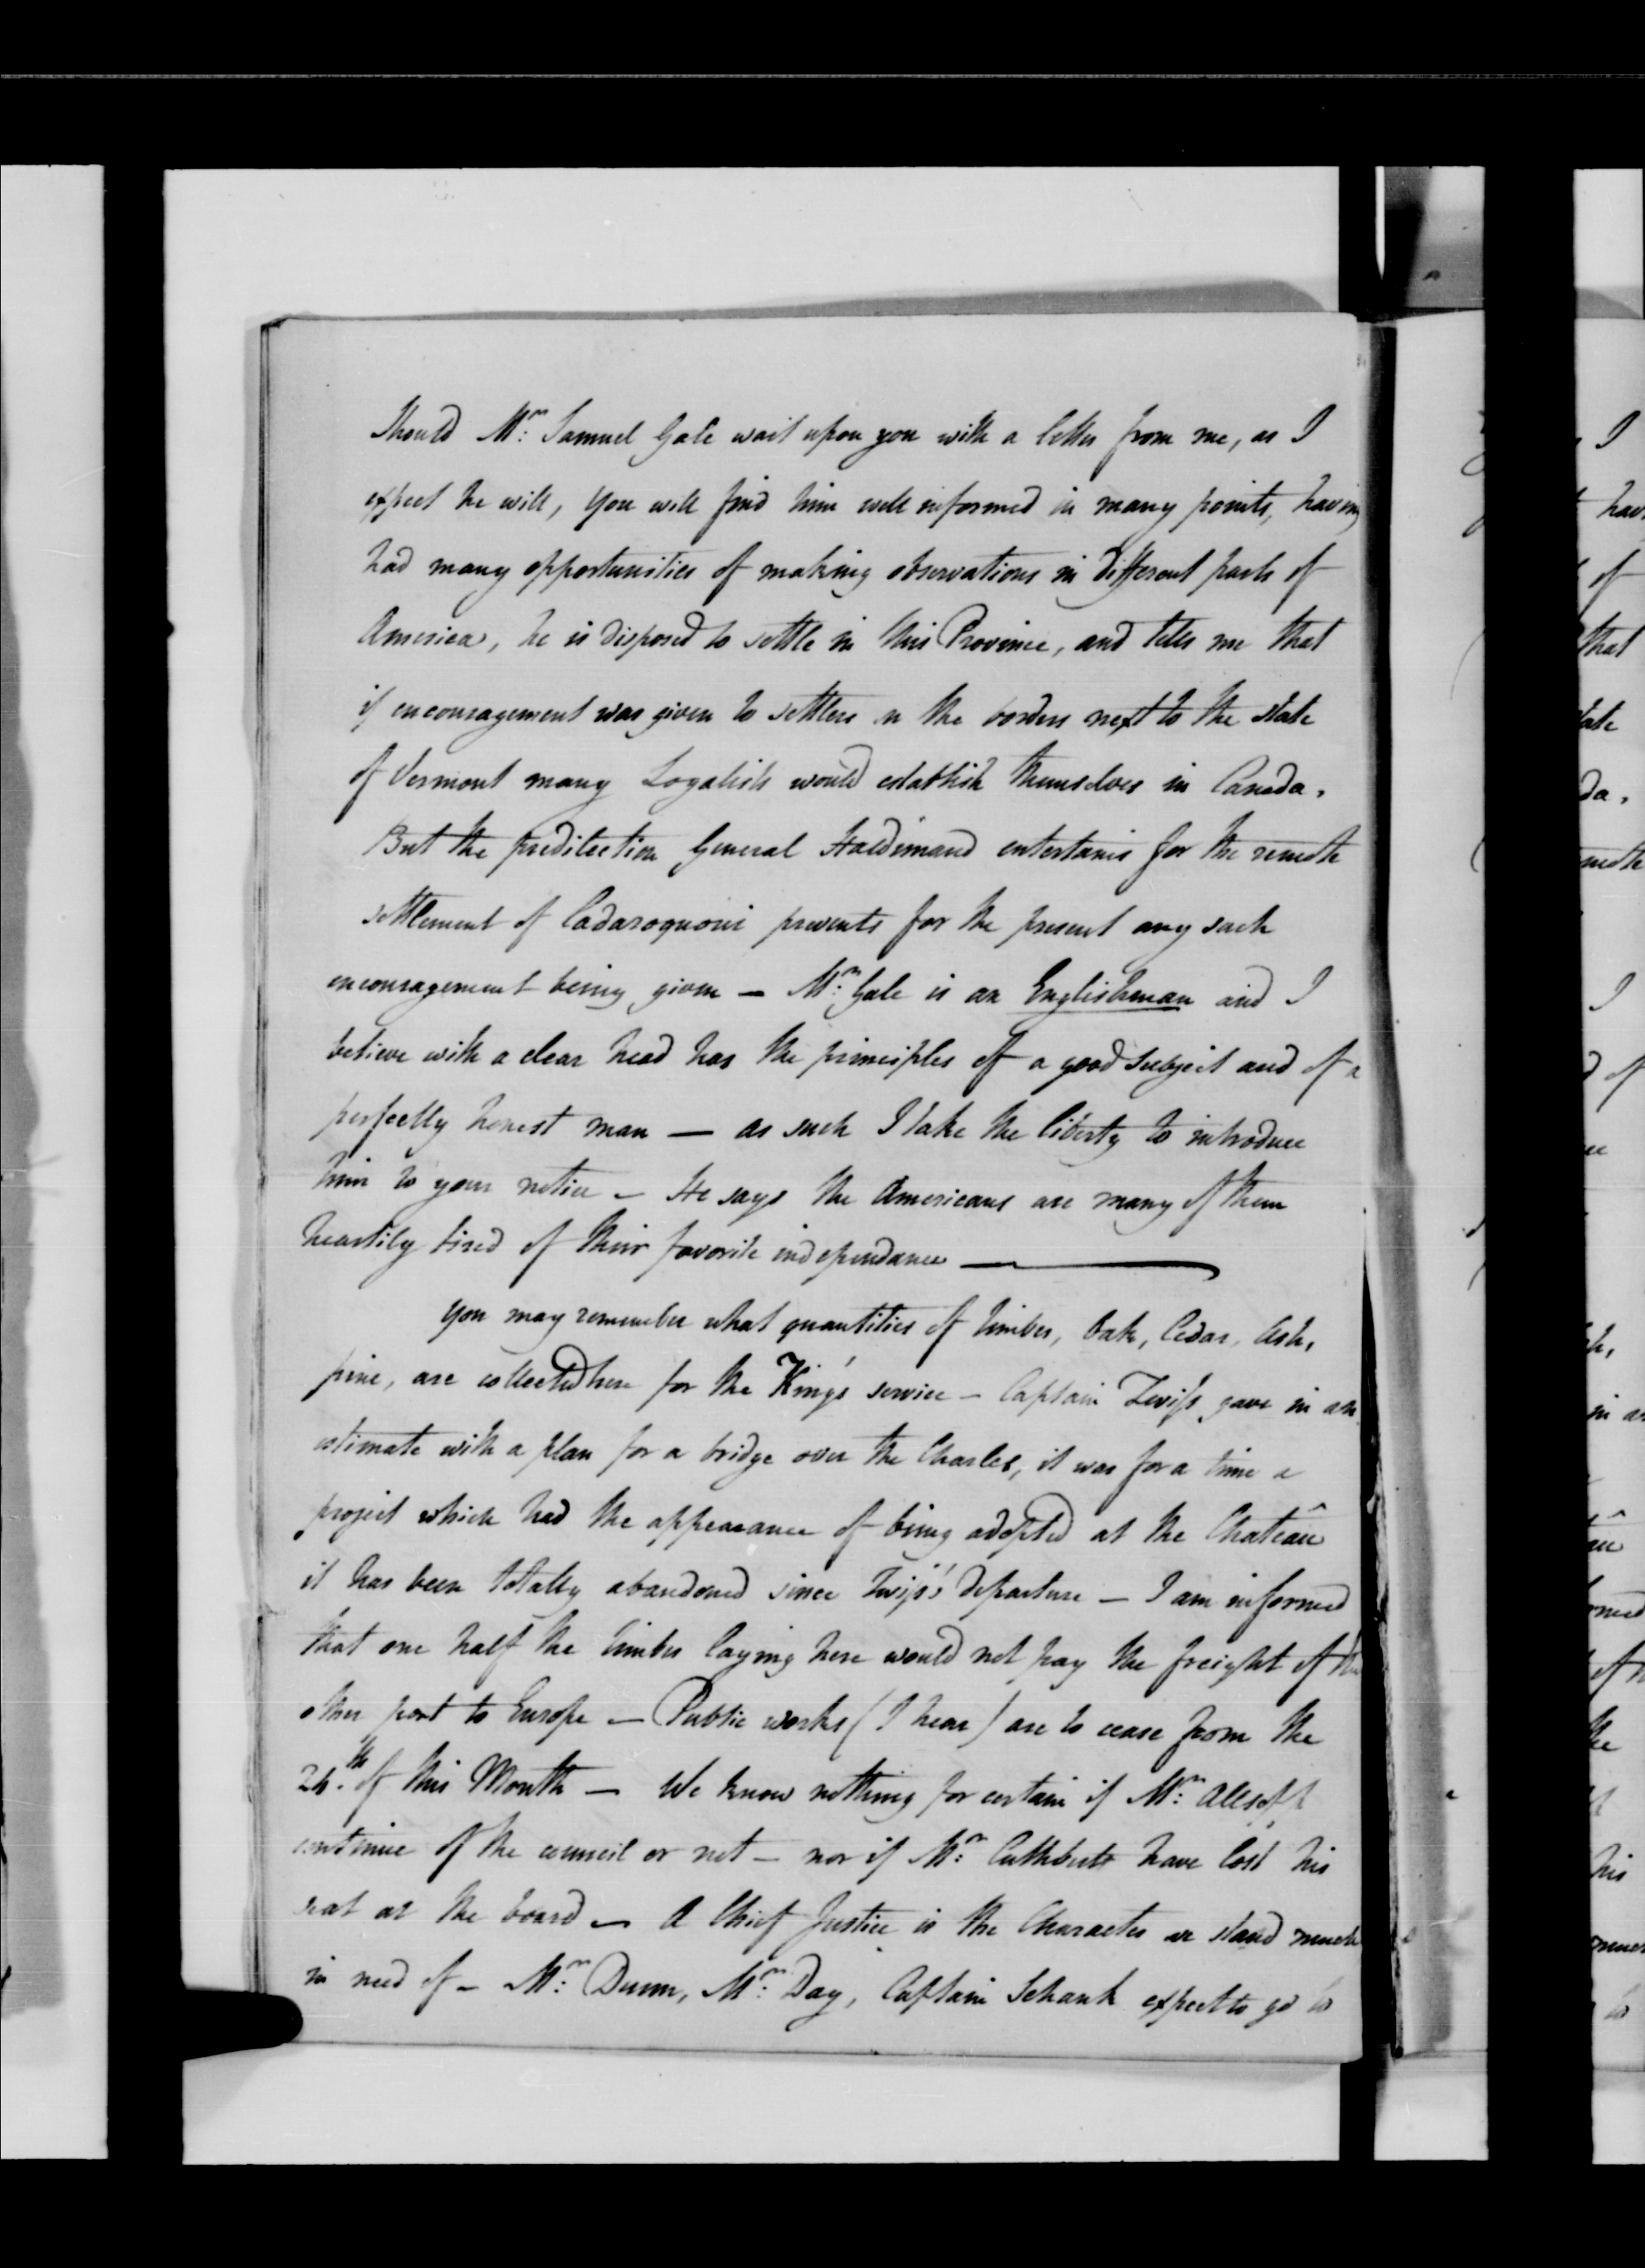 Should Mr: Samuel Gale wait upon you with a letter from me, as I
expect he will, you will find him well informed in many points, having
had many opportunities of making observations in different parts of
America, he is disposed to settle in this Province, and tells me that
if encouragement was given to settlers on the borders next to the state
of Vermont many Loyalists would establish themselves in Canada.
But the predilection General Haldimand entertains for the remote
settlement of Cadaroquoui prevents for the present any such
encouragement being given — Mr: Gale is an Englishman and I
believe with a clear head has the principles of a good subject and of a
perfectly honest man — as such I take the liberty to introduce
him to your notice — He says the Americans are many of them
heartily tired of their favorite independance —
You may remember what quantities of timber, Oak, Cedar, Ash,
pine, are collected here for the King's service — Captain Twiss gave in an
estimate with a plan for a bridge over the Charles, it was for a time a
project which had the appearance of being adopted at the Chateâu
it has been totally abandoned since Twiss's departure — I am informed
that one half the timber laying here would not pay the freight of the
other part to Europe — Public works (I hear) are to cease from the
24.th of this Month — We know nothing for certain if Mr: Allsopp
continue of the council or not — nor if Mr: Cuthbert have lost his
seat at the board — A Chief Justice is the Character we stand much
in need of — Mr: Dunn, Mr: Day, Captain Schank expect to go to